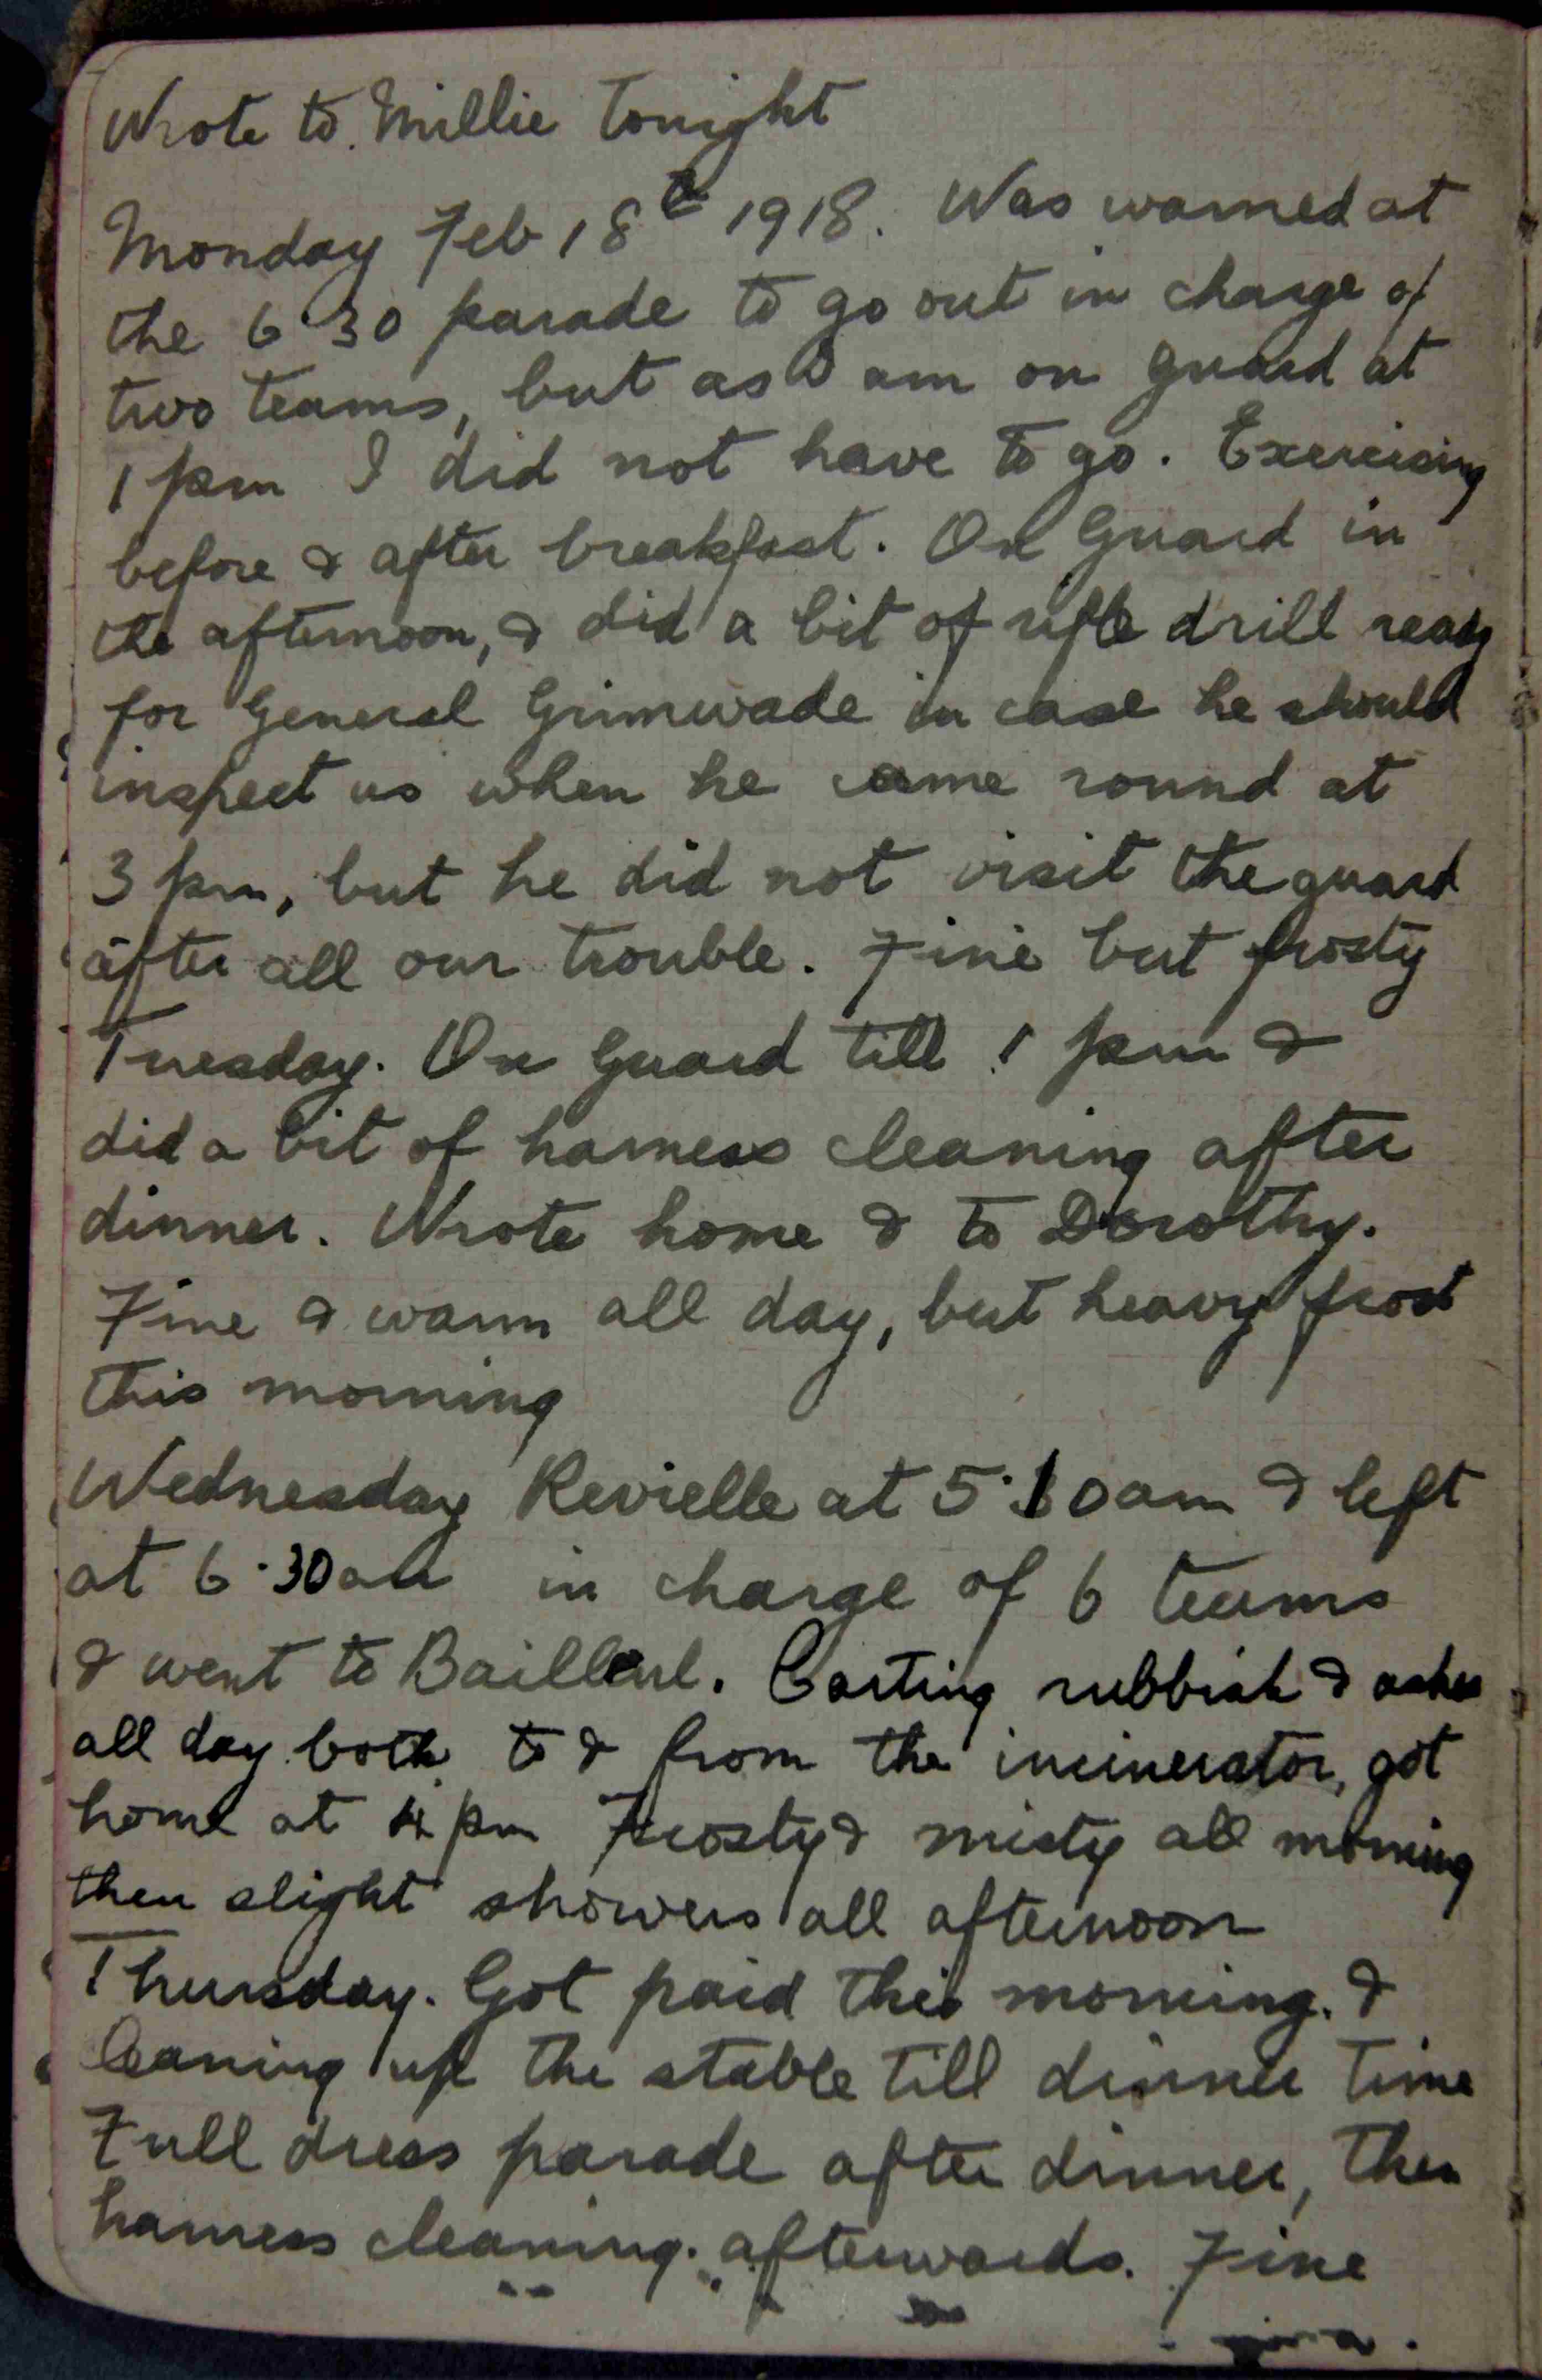 Wrote to Millie tonight
Monday Feb 18th 1918. Was warned at
the 6.30 parade to go out in charge of
two teams, but as I am on guard at
1 pm I did not have to go. Exercising
before & after breakfast. On Guard in
the afternoon, & did a bit of rifle drill ready
for General Grimwade in case he should
inspect us when he came round at
3 pm, but he did not visit the guard
after all our trouble. Fine but frosty
Tuesday. On Guard till 1 pm &
did a bit of harness cleaning after
dinner. Wrote home & to Dorothy.
Fine & warm all day, but heavy frost
this morning
Wednesday Revielle at 5.10 am & left
at 6.30 am in charge of 6 teams
& went to Bailleul. Carting rubbish & ashes
all day both to & from the incinerator, got
home at 4 pm Frosty & misty all morning
then slight showers all afternoon
Thursday. Got paid this morning. &
leaning up the stable till dinner time
Full dress parade after dinner, then
harness cleaning. afterwards. Fine